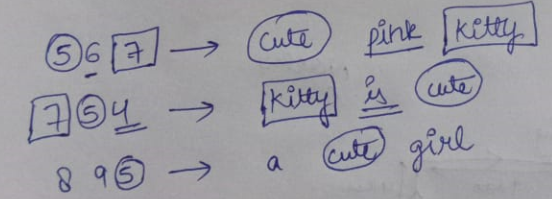 5 6 7 → cute pink kitty
7 5 4 → kitty is cute
8 9 5 → a cute girl